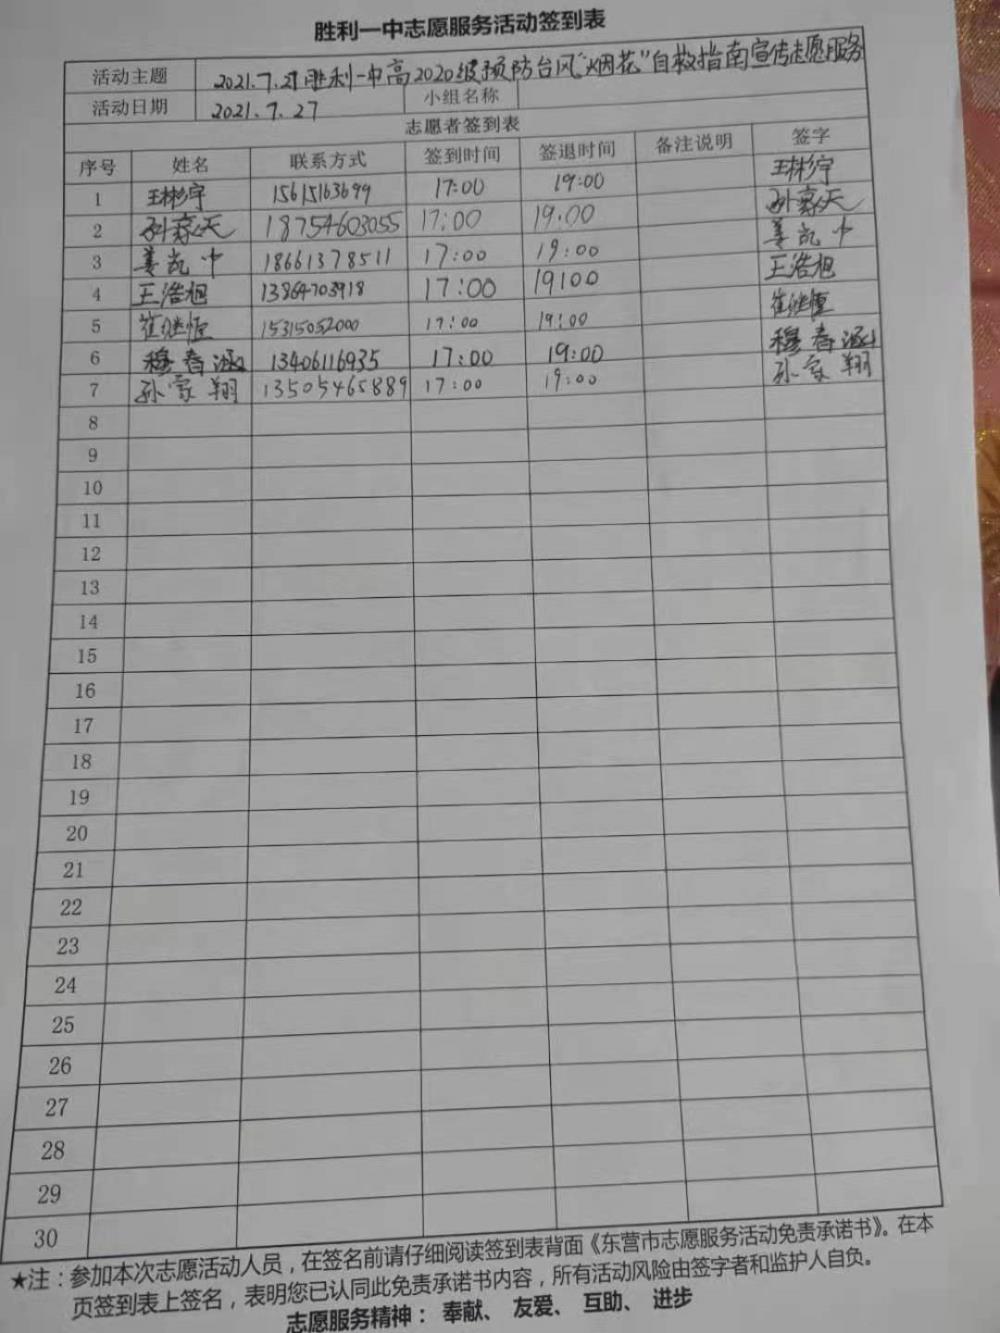 胜利一中志愿服务活动签到表
活动主题 2021.7.27胜利一中高2020级预防台风“烟花”自救指南宣传志愿服务
活动日期 2021.7.27 小组名称
志愿者签到表
序号 姓名 联系方式 签到时间 签退时间 备注说明 签字
1 王彬宇 15615163699 17:00 19:00 王彬宇
2 孙豪天 18754603055 17:00 19:00 孙豪天
3 姜凯中 18661378511 17:00 19:00 姜凯中
4 王浩旭 13864703918 17:00 19:00 王浩旭
5 崔继恒 15315052000 17:00 19:00 崔继恒
6 穆春涵 13406116935 17:00 19:00 穆春涵
7 孙家翔 13505465889 17:00 19:00 孙家翔
8
9
10
11
12
13
14
15
16
17
18
19
20
21
22
23
24
25
26
27
28
29
30
★注：参加本次志愿活动人员，在签名前请仔细阅读签到表背面《东营市志愿服务活动免责承诺书》。在本
页签到表上签名，表明您已认同此免责承诺书内容，所有活动风险由签字者和监护人自负。
志愿服务精神：奉献、友爱、互助、进步